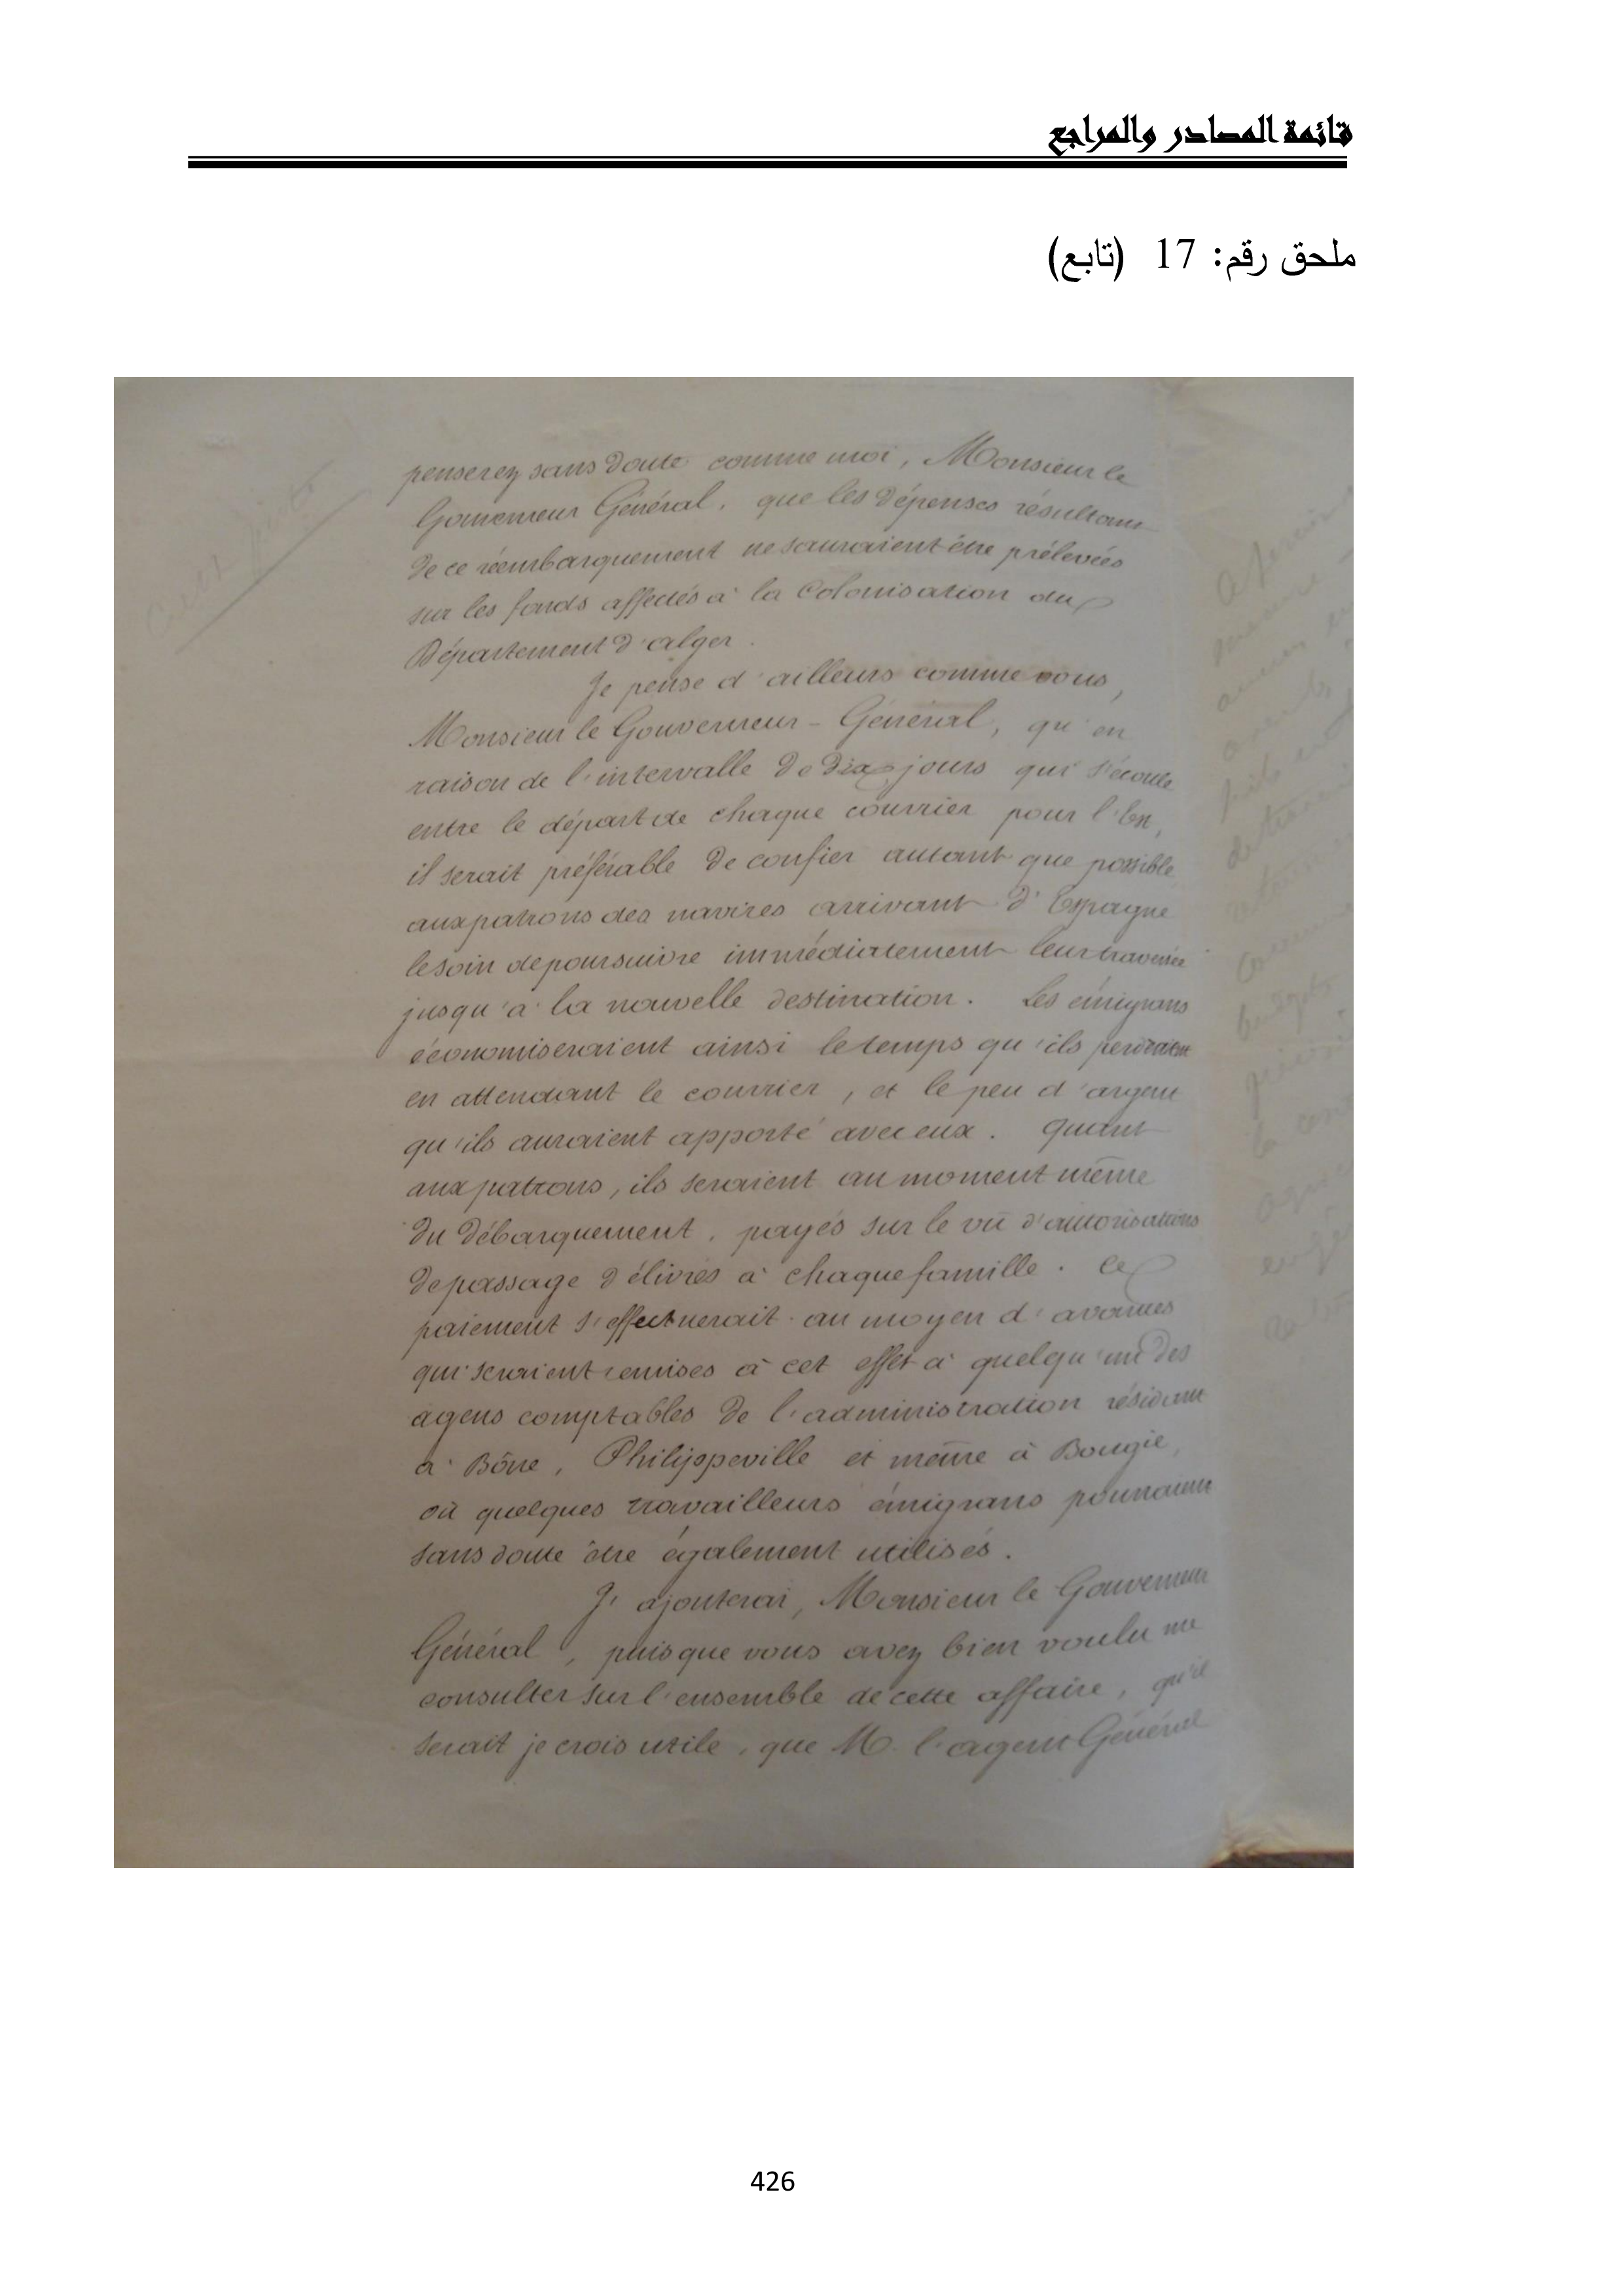 قائمة المصادر والمراجع
ملحق رقم: 17 (تابع)
penserez sans doute comme moi, Monsieur le
Gouverneur Général, que les dépenses résultant
de ce réembarquement ne sauraient être prélevées
sur les fonds affectés à la Colonisation du
Département d'alger.
Je pense d'ailleurs comme vous,
Monsieur le Gouverneur-Général, qu'en
raison de l'intervalle de dix jours qui s'écoule
entre le départ de chaque courrier pour l'Est,
il serait préférable de confier autant que possible
aux patrons des navires arrivant d'Espagne
le soin de poursuivre immédiatement leur traversée
jusqu'à la nouvelle destination. Les émigrans
économiseraient ainsi le temps qu'ils perdraient
en attendant le courrier, et le peu d'argent
qu'ils auraient apporté avec eux. Quant
aux patrons, ils seraient au moment même
du débarquement, payés sur le vu d'autorisations
de passage délivrés à chaque famille. Ce
paiement s'effectuerait au moyen d'avances
qui seraient remises à cet effet à quelqu'un des
agens comptables de l'administration résidant
à Bône, Philippeville et même à Bougie,
où quelques travailleurs émigrans pourraient
sans doute être également utilisés.
J'ajouterai, Monsieur le Gouverneur
Général, puisque vous avez bien voulu me
consulter sur l'ensemble de cette affaire, qu'il
serait je crois utile, que M. l'agent Général
426